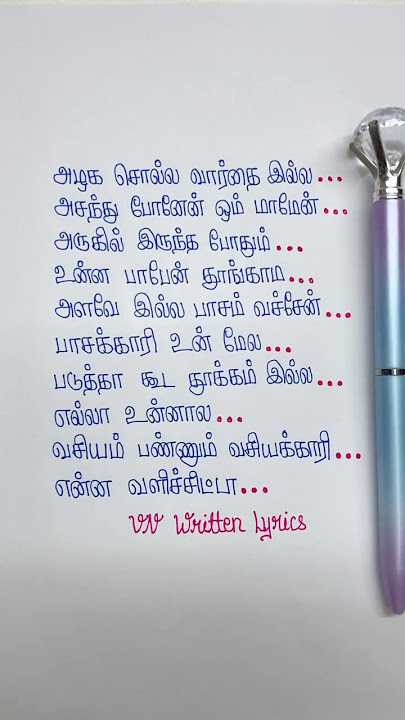 அழக சொல்ல வார்தை இல்ல...
அசந்து போனேன் ஒம் மாமேன்...
அருகில் இருந்த போதும்...
உன்ன பாபேன் தூங்காம...
அளவே இல்ல பாசம் வச்சேன்...
பாசக்காரி உன் மேல...
படுத்தா கூட தூக்கம் இல்ல...
எல்லா உன்னால...
வசியம் பண்ணும் வசியக்காரி...
என்ன வளிச்சிட்டா...
VN Written Lyrics